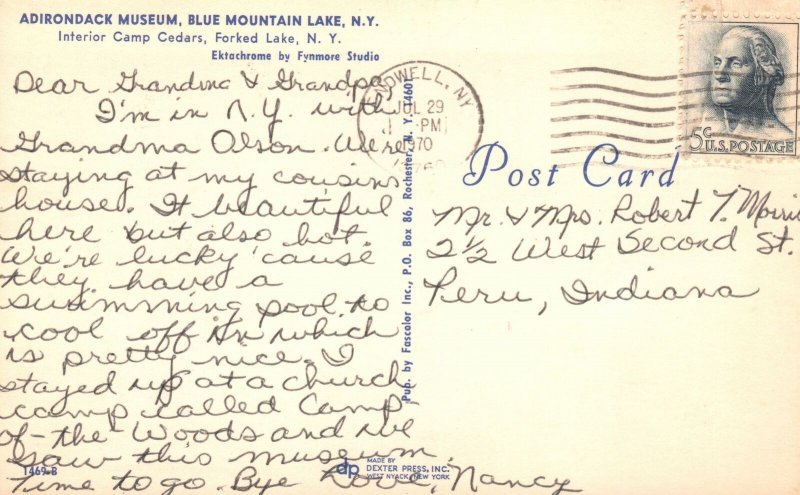 ADIRONDACK MUSEUM, BLUE MOUNTAIN LAKE, N.Y.
Interior Camp Cedars, Forked Lake, N. Y.
Ektachrome by Fynmore Studio
Dear Grandma & Grandpa,
I'm in N.Y. with
Grandma Olson. We're
staying at my cousins
house. It beautiful
here but also hot.
We're lucky 'cause
they have a
swimming pool to
cool off in which
is pretty nice. I
stayed up at a church
camp called Camp-
of-the Woods and we
saw this museum.
Time to go. Bye Love, Nancy
1469-B
Pub. by Fascolor Inc., P.O. Box 86, Rochester, N. Y. 14601
dp
MADE BY
DEXTER PRESS, INC.
WEST NYACK, NEW YORK
ENDWELL, NY
JUL 29
PM
1970
5c U.S. POSTAGE
Post Card
Mr. & Mrs. Robert T. Morris
2½ West Second St.
Peru, Indiana